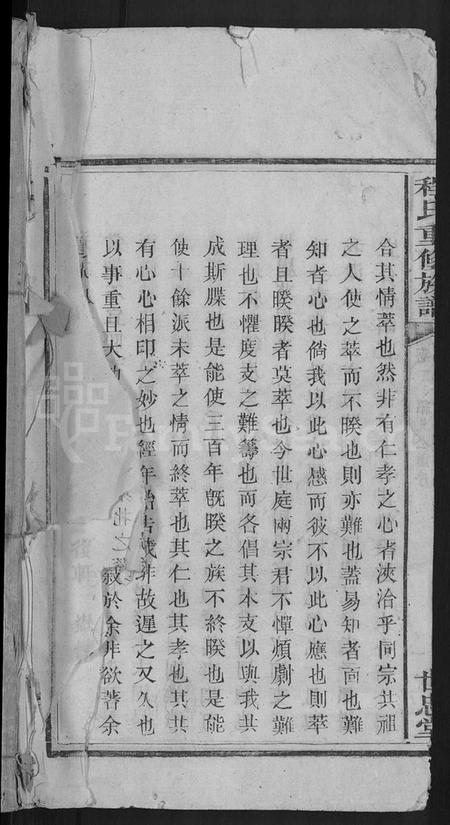 程氏重修族譜
世忠堂
合其情萃也然非有仁孝之心者浹冾乎同宗共祖
之人使之萃而不睽也則亦難也蓋易知者面也難
知者心也倘我以此心感而彼不以此心應也則萃
者且睽睽者莫萃也今世庭兩宗君不憚煩劇之難
理也不懼度支之難籌也而各倡其本支以與我共
成斯牒也是能使三百年旣睽之族不終睽也是能
使十餘派未萃之情而終萃也其仁也其孝也其共
有心心相印之妙也經年
故遲之又久也
以事重且大
叙於余非欲著余